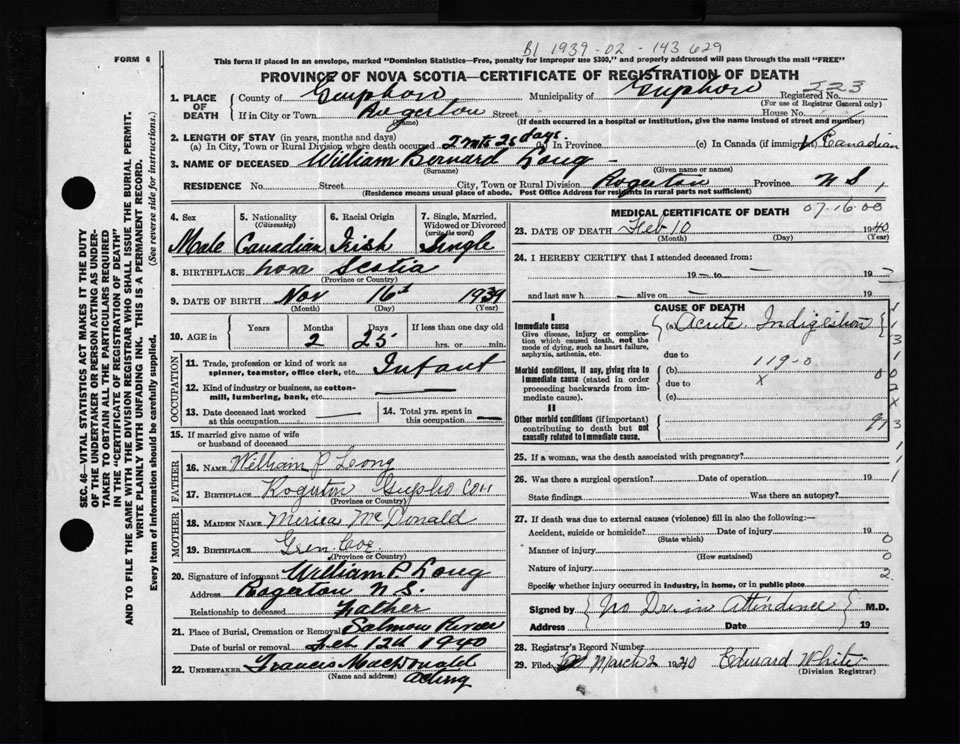 B1 1939-02-143629
FORM 6
This form if placed in an envelope, marked "Dominion Statistics—Free, penalty for improper use $300," and properly addressed will pass through the mail "FREE"
PROVINCE OF NOVA SCOTIA—CERTIFICATE OF REGISTRATION OF DEATH
1. PLACE OF DEATH { County of Municipality of Registered No. 223
(For use of Registrar General only)
If in City or Town Rogerton Street House No.
(Name) (If death occurred in a hospital or institution, give the name instead of street and number)
2. LENGTH OF STAY (in years, months and days)
(a) In City, Town or Rural Division where death occurred 2 mts 25 days. (b) In Province (c) In Canada (if immigrant) Canadian
3. NAME OF DECEASED William Bernard Long
(Surname) (Given name or names)
RESIDENCE No. Street City, Town or Rural Division Rogerton Province N S,
(Residence means usual place of abode. Post Office Address for residents in rural parts not sufficient)
4. Sex Male
5. Nationality (Citizenship) Canadian
6. Racial Origin Irish
7. Single, Married, Widowed or Divorced (write the word) Single
8. BIRTHPLACE Nova Scotia
(Province or Country)
9. DATE OF BIRTH Nov 16th 1939
(Month) (Day) (Year)
10. AGE in { Years Months 2 Days 25 If less than one day old hrs. or min.
OCCUPATION
11. Trade, profession or kind of work as spinner, teamster, office clerk, etc. Infant
12. Kind of industry or business, as cotton-mill, lumbering, bank, etc. —
13. Date deceased last worked at this occupation —
14. Total yrs. spent in this occupation —
15. If married give name of wife or husband of deceased
FATHER
16. NAME William P Long
17. BIRTHPLACE
(Province or Country)
MOTHER
18. MAIDEN NAME McDonald
19. BIRTHPLACE
(Province or Country)
20. Signature of informant William P. Long
Address Rogerton N S.
Relationship to deceased Father
21. Place of Burial, Cremation or Removal Salmon River
Date of burial or removal Feb 12th 1940
22. UNDERTAKER Francis MacDonald
(Name and address) Acting
MEDICAL CERTIFICATE OF DEATH 07.16.00
23. DATE OF DEATH Feb 10 1940
(Month) (Day) (Year)
24. I HEREBY CERTIFY that I attended deceased from:
19 — to — 19 —
and last saw h — alive on — 19 —
CAUSE OF DEATH
I
Immediate cause (a) Acute Indigestion
Give disease, injury or complication which caused death, not the mode of dying, such as heart failure, asphyxia, asthenia, etc.
due to
Morbid conditions, if any, giving rise to immediate cause (stated in order proceeding backwards from immediate cause). (b) 119-0
due to X
(c)
II
Other morbid conditions (if important) contributing to death but not causally related to immediate cause.
25. If a woman, was the death associated with pregnancy?
26. Was there a surgical operation? Date of operation 19
State findings Was there an autopsy?
27. If death was due to external causes (violence) fill in also the following:—
Accident, suicide or homicide? Date of injury 19
(State which)
Manner of injury
(How sustained)
Nature of injury
Specify whether injury occurred in industry, in home, or in public place
Signed by { No Dr in Attendince } M.D.
Address Date 19
28. Registrar's Record Number
29. Filed March 2 1940 Edward White
(Division Registrar)
SEC. 46—VITAL STATISTICS ACT MAKES IT THE DUTY
OF THE UNDERTAKER OR PERSON ACTING AS UNDER-
TAKER TO OBTAIN ALL THE PARTICULARS REQUIRED
IN THE "CERTIFICATE OF REGISTRATION OF DEATH"
AND TO FILE THE SAME WITH THE DIVISION REGISTRAR WHO SHALL ISSUE THE BURIAL PERMIT.
WRITE PLAINLY WITH UNFADING INK. THIS IS A PERMANENT RECORD.
Every item of information should be carefully supplied. (See reverse side for instructions.)